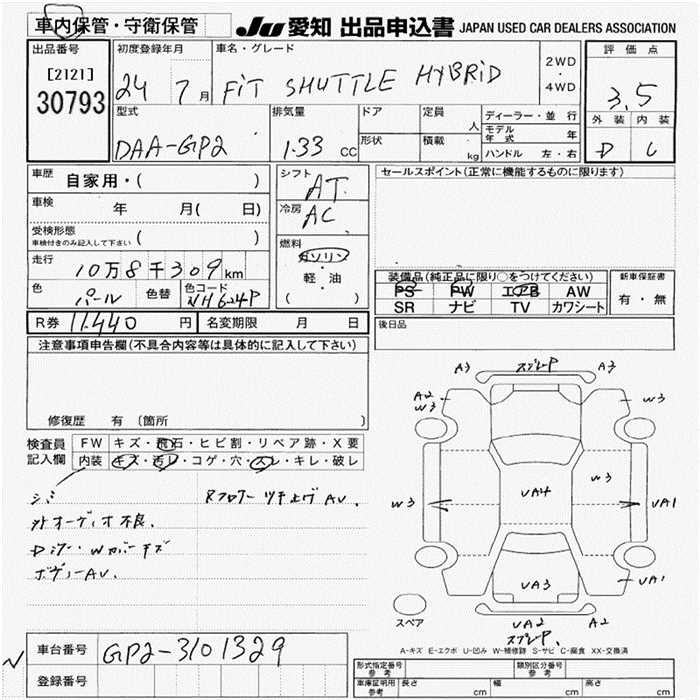 車内保管・守衛保管
JU 愛知 出品申込書 JAPAN USED CAR DEALERS ASSOCIATION
出品番号
[2121]
30793
初度登録年月
24 7月
車名・グレード
FIT SHUTTLE HYBRID
2WD
・
4WD
評価点
3.5
外装 内装
D C
型式
DAA-GP2
排気量
1.33 CC
ドア
形状
定員
人
積載
kg
ディーラー・並行
モデル年式 年
ハンドル 左・右
車歴 自家用・( )
車検 年 月( 日)
受検形態
車検付きのみ記入して下さい ( )
走行 10万8千309km
色 パール 色替 色コード NH624P
シフト
AT
冷房
AC
燃料
ガソリン
・
軽・油
( )
セールスポイント(正常に機能するものに限ります)
装備品(純正品に限り○をつけてください)
PS PW エアB AW
SR ナビ TV カワシート
新車保証書
有・無
R券 11,440 円 名変期限 月 日
後日品
注意事項申告欄(不具合内容等は具体的に記入して下さい)
修復歴 有 〔箇所 〕
検査員記入欄
FW キズ・飛石・ヒビ割・リペア跡・X要
内装 キズ・汚レ・コゲ・穴・スレ・キレ・破レ
シミ
外オーディオ不良.
Rフロアー ツキ上げ AV.
ボディーAV.
A3 スプレーP A3
A2
W3
W3
W3
UA4
W3
UA1
UA3
UA1
UA2
スプレーP.
スペア
A-キズ E-エクボ U-凹み W-補修跡 S-サビ C-腐食 XX-交換済
車台番号 GP2-3101329
登録番号
形式指定番号
参考
類別区分番号
参考
車庫証明用
参考
長さ cm 幅 cm 高さ cm